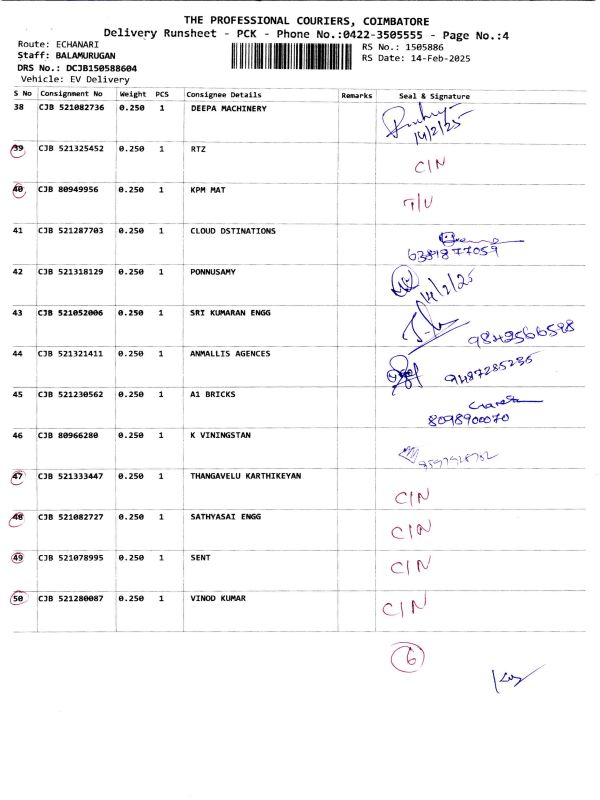 THE PROFESSIONAL COURIERS, COIMBATORE
Delivery Runsheet - PCK - Phone No.:0422-3505555 - Page No.:4
Route: ECHANARI
Staff: BALAMURUGAN
DRS No.: DCJB150588604
Vehicle: EV Delivery
RS No.: 1505886
RS Date: 14-Feb-2025
S No Consignment No Weight PCS Consignee Details Remarks Seal & Signature
38 CJB 521082736 0.250 1 DEEPA MACHINERY 14/2/25
39 CJB 521325452 0.250 1 RTZ C/N
40 CJB 80949956 0.250 1 KPM MAT T/U
41 CJB 521287703 0.250 1 CLOUD DSTINATIONS 6389877059
42 CJB 521318129 0.250 1 PONNUSAMY 14/2/25
43 CJB 521052006 0.250 1 SRI KUMARAN ENGG 9842566598
44 CJB 521321411 0.250 1 ANMALLIS AGENCES 9487285235
45 CJB 521230562 0.250 1 A1 BRICKS 8098900070
46 CJB 80966280 0.250 1 K VININGSTAN
47 CJB 521333447 0.250 1 THANGAVELU KARTHIKEYAN C/N
48 CJB 521082727 0.250 1 SATHYASAI ENGG C/N
49 CJB 521078995 0.250 1 SENT C/N
50 CJB 521280087 0.250 1 VINOD KUMAR C/N
6